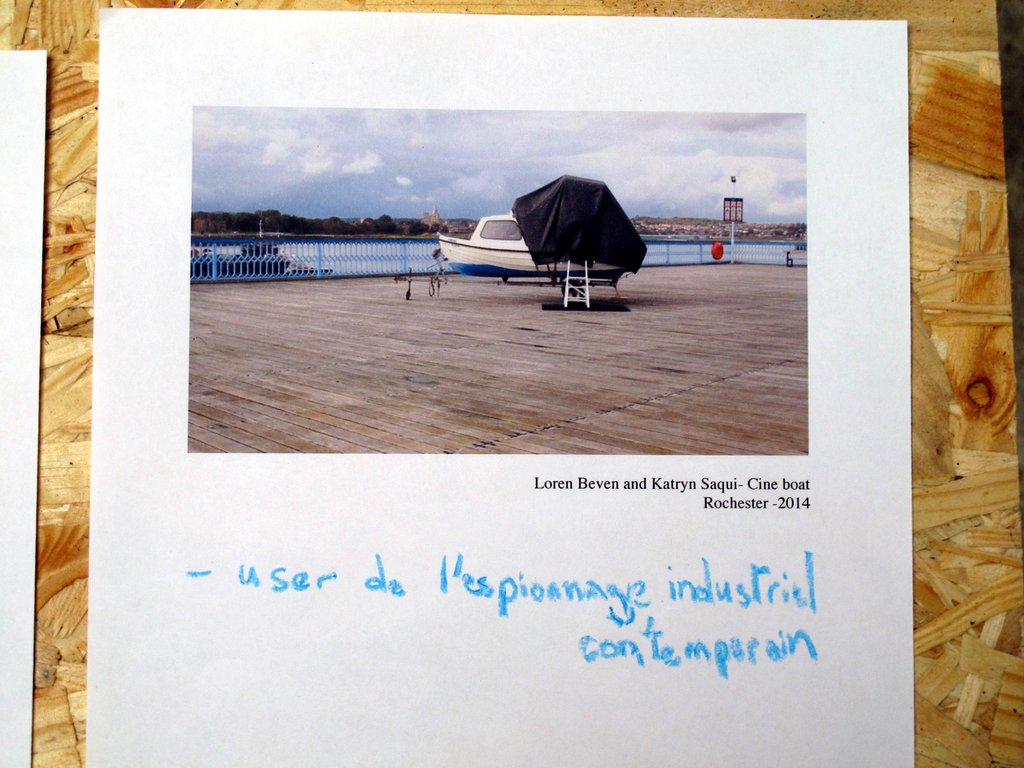 Loren Beven and Katryn Saqui- Cine boat
Rochester -2014
- user de l'espionnage industriel
contemporain